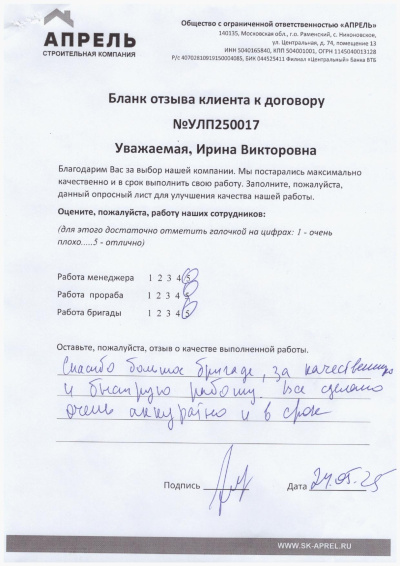 АПРЕЛЬ
СТРОИТЕЛЬНАЯ КОМПАНИЯ
Общество с ограниченной ответственностью «АПРЕЛЬ»
140135, Московская обл., г.о. Раменский, с. Никоновское,
ул. Центральная, д. 74, помещение 13
ИНН 5040165840, КПП 504001001, ОГРН 1145040013128
Р/с 40702810919150004085, БИК 044525411 Филиал «Центральный» Банка ВТБ
Бланк отзыва клиента к договору
№УЛП250017
Уважаемая, Ирина Викторовна
Благодарим Вас за выбор нашей компании. Мы постарались максимально
качественно и в срок выполнить свою работу. Заполните, пожалуйста,
данный опросный лист для улучшения качества нашей работы.
Оцените, пожалуйста, работу наших сотрудников:
(для этого достаточно отметить галочкой на цифрах: 1 - очень
плохо.....5 - отлично)
Работа менеджера 1 2 3 4 5
Работа прораба 1 2 3 4 5
Работа бригады 1 2 3 4 5
Оставьте, пожалуйста, отзыв о качестве выполненной работы.
Спасибо большое бригаде, за качественную
и быструю работу. Все сделано
очень аккуратно и в срок
Подпись Дата 24.05.25
WWW.SK-APREL.RU